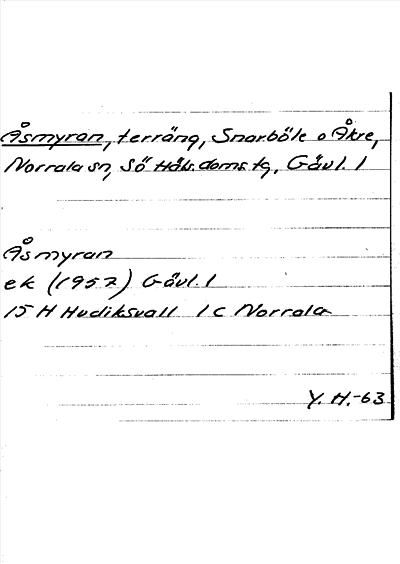 Åsmyran, terräng, Snarböle o Åkre,
Norrala sn, Sö Häls. doms tg, Gävl. l
Åsmyran
ek (1957) Gävl. l
15 H Hudiksvall 1 c Norrala
Y. H.-63